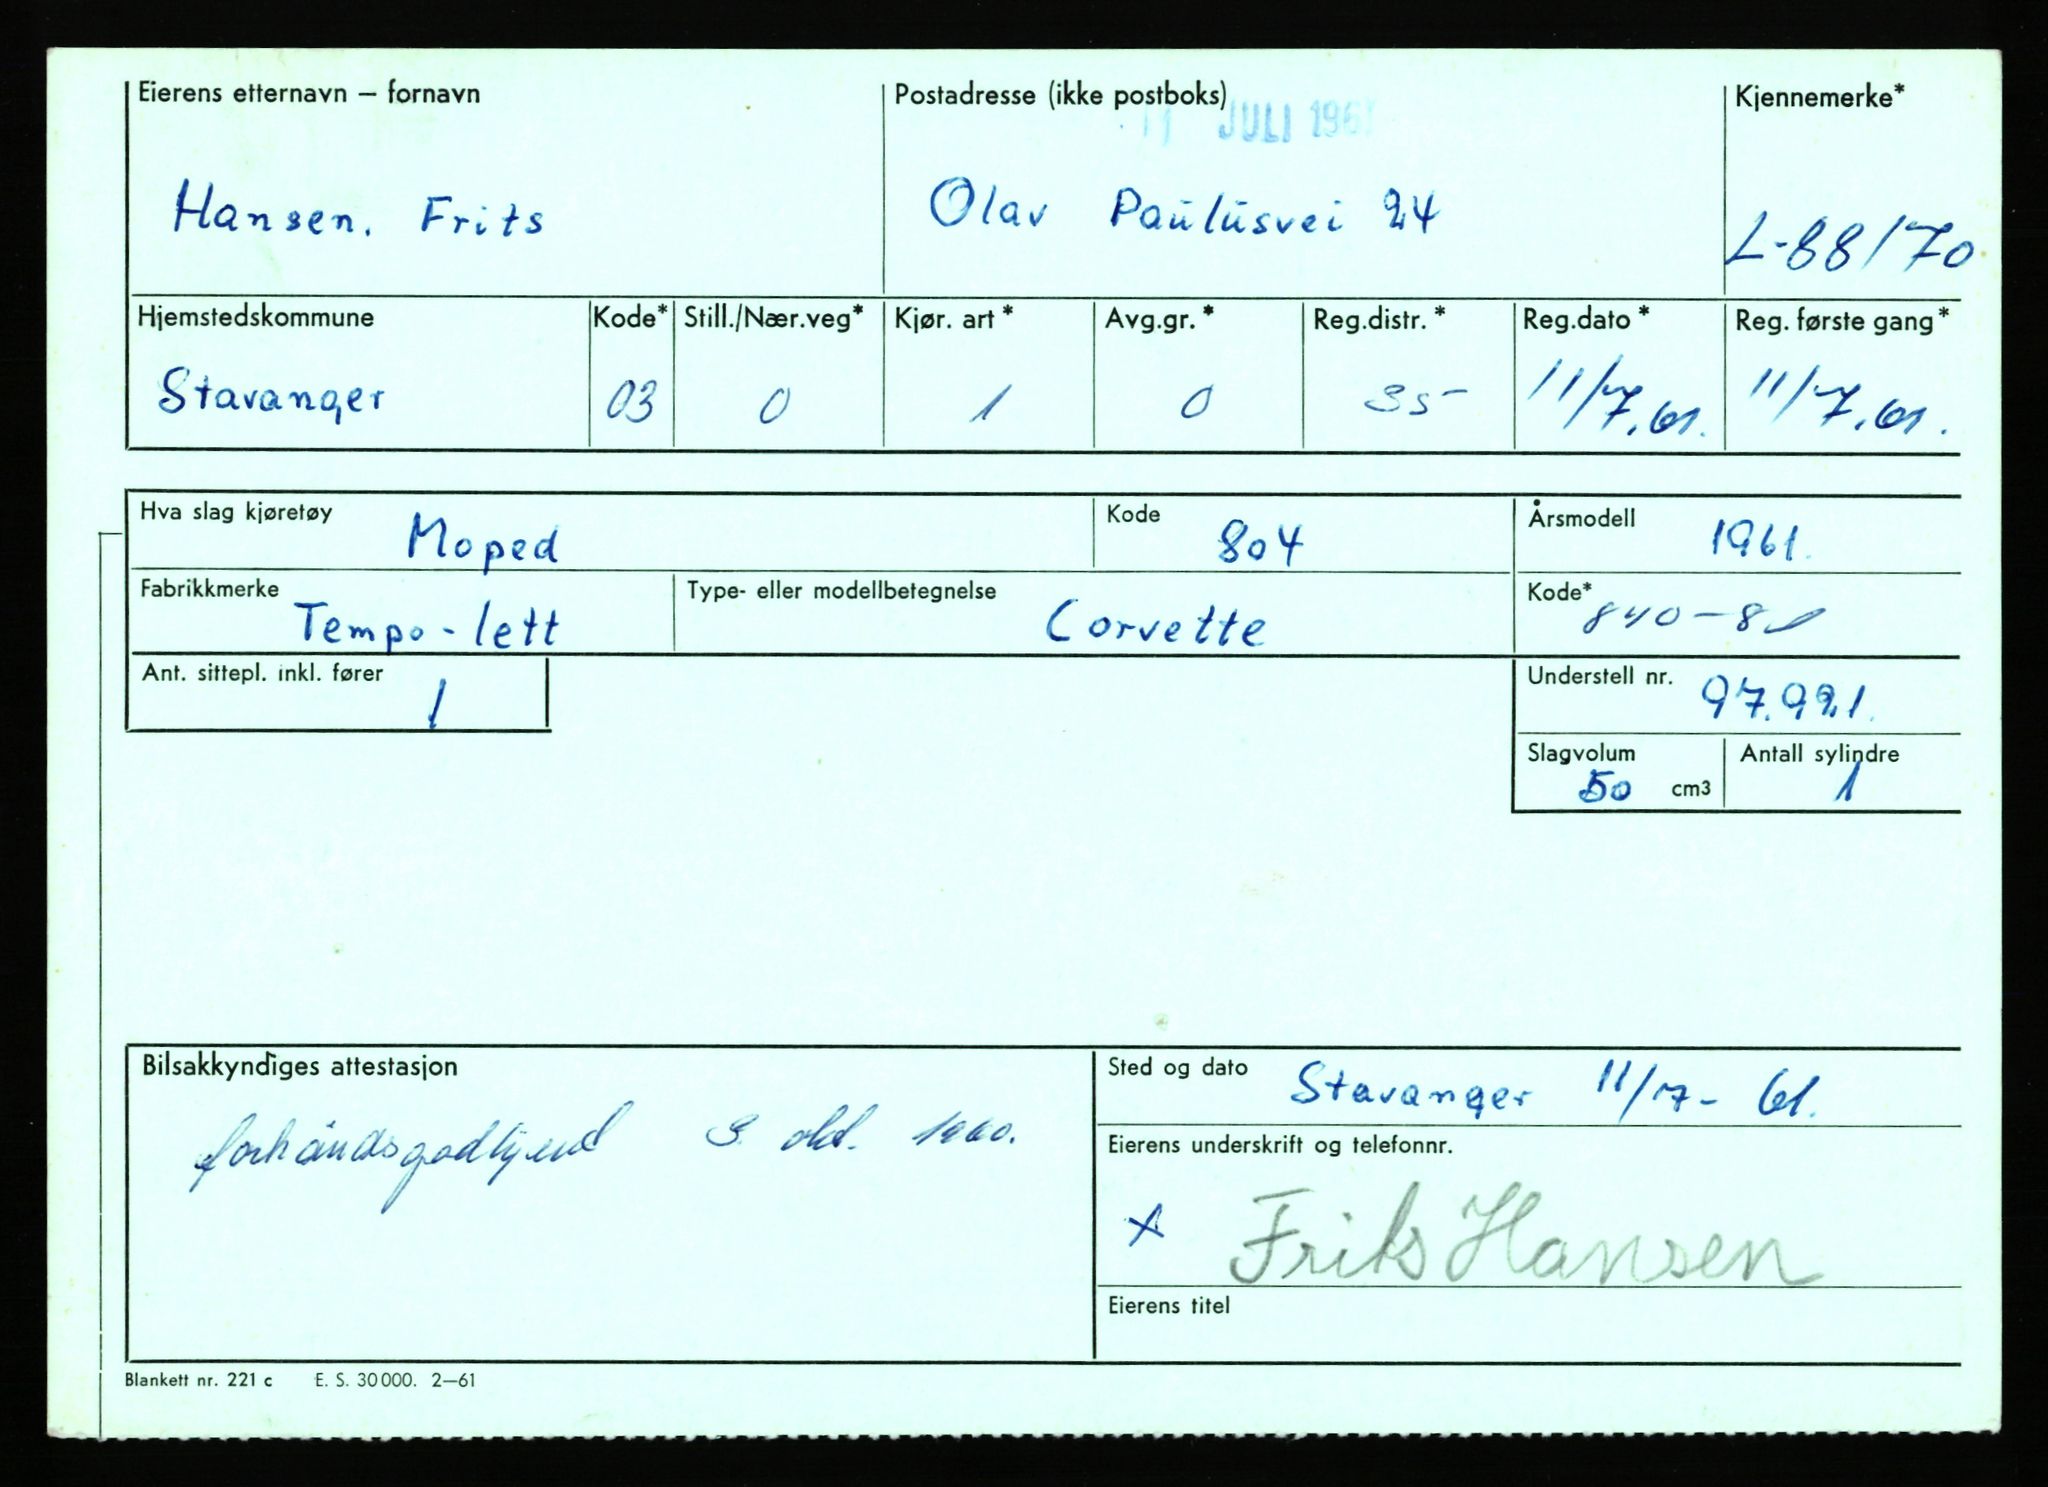 Eierens etternavn – fornavn
Postadresse (ikke postboks)
Kjennemerke*
11 JULI 1961
Hansen. Frits
Olav Paulusvei 24
L-88170
Hjemstedskommune
Kode*
Still./Nær.veg*
Kjør. art *
Avg.gr. *
Reg.distr. *
Reg.dato *
Reg. første gang*
Stavanger
03
0
1
0
35
11/7.61.
11/7.61.
Hva slag kjøretøy
Moped
Kode
804
Årsmodell
1961.
Fabrikkmerke
Tempo-lett
Type- eller modellbetegnelse
Corvette
Kode*
840-81
Ant. sittepl. inkl. fører
1
Understell nr.
97.921.
Slagvolum
50 cm3
Antall sylindre
1
Bilsakkyndiges attestasjon
forhåndsgodkjend 3. okt. 1960.
Sted og dato
Stavanger 11/7- 61.
Eierens underskrift og telefonnr.
x Frits Hansen
Eierens titel
Blankett nr. 221 c E. S. 30 000. 2–61